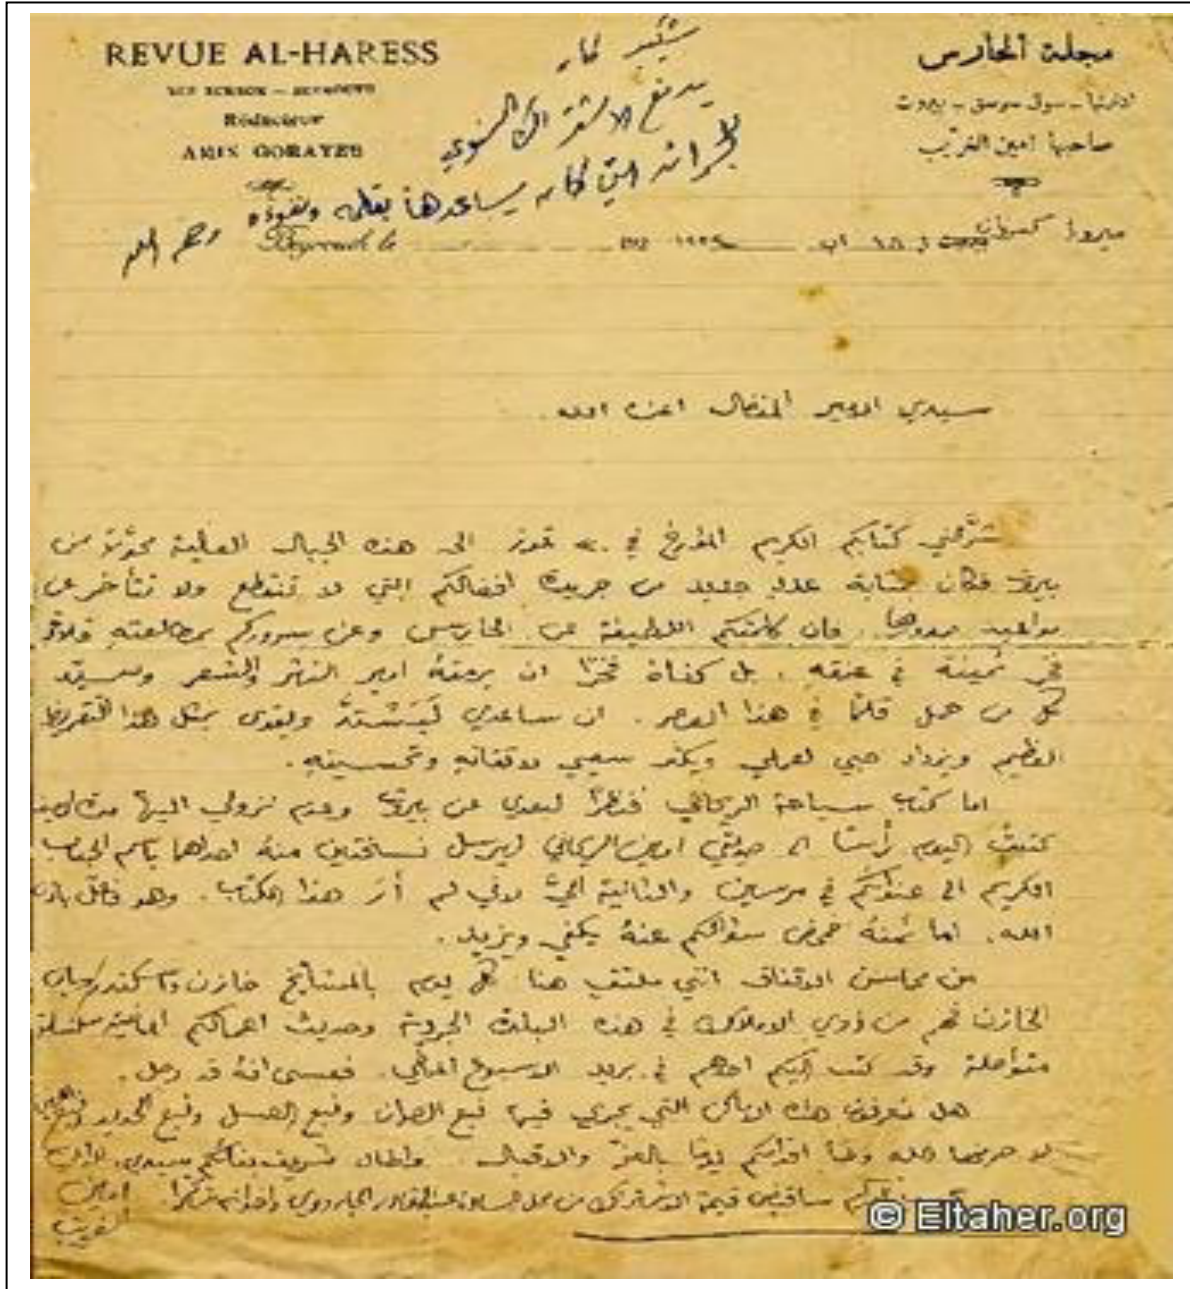 REVUE AL-HARESS
Rédacteur
AMIN GORAYEB
مجلة الحارس
ادارتها - سوق سرسق - بيروت
صاحبها امين الغريب
شكيب كان
يدفع الاشتراك السنوي
للجرائد التي كان يساعدها بقلمه ونفوذه رحمه الله
Beyrouth le
ميروبا كسروان في ١٥ آب
سيدي الامير المفضال اعزه الله
شرّفني كتابكم الكريم المؤرخ في تموز الى هذه الجبال العالية محوّلاً من
بيروت فكان بمثابة عدد جديد من جريدة افضالكم التي لا تنقطع ولا تتأخر عن
مواعيد صدورها. فان كلمتكم اللطيفة عن الحارس وعن سروركم بمطالعته قلادة
فخر ثمينة في عنقه. بل كفاه فخرًا ان يرمقهُ امير النثر والشعر وسيّد
كل من حمل قلمًا في هذا العصر. ان ساعدي ليَشتدُّ ويقوى بمثل هذا التقريظ
العظيم ويزداد حبي لعملي ويكثر سعيي لاتقانهِ وتحسينهِ.
اما كتاب سياحة الريحاني فنظرًا لبعدي عن بيروت وعدم نزولي اليها
كتبتُ اليوم رأسًا الى صديقي امين الريحاني ليرسل نسختين منهُ احداها باسم الجناب
الكريم الى عنوانكم في مرسين والثانية اليَّ لاني لم أرَ هذا الكتاب. وهو باذن
الله. اما ثمنهُ فمحض سؤالكم عنهُ يكفي ويزيد.
من محاسن الاتفاق انني ملتقٍ هنا كل يوم بالمشايخ خازن واسكندر
الخازن فهم من ذوي الاملاك في هذه البلدة الجردية وحديث
متواصلة وقد كتب اليكم احدهم في بريد الاسبوع. فعسى انهُ قد وصل.
هل تعرفون هذه الاماكن التي يجري فيها نبع ونبع العسل ونبع الحديد
لا حرمها الله وطأ اقدامكم يومًا بالعزّ والاقبال. واطال بقائكم سيدي
ساقبض قيمة الاشتراك من محل عبد القادر واخوانه شكرًا.
امين
الغريب
© Eltaher.org